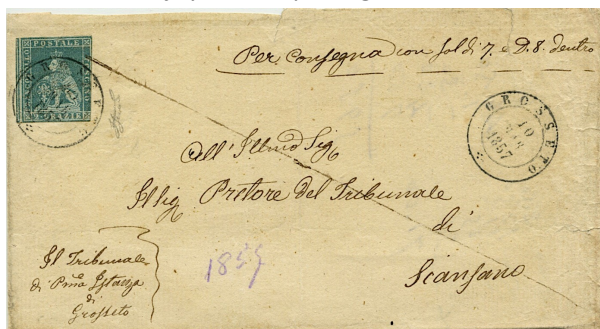 FRANCOBOLLO POSTALE TOSCANO
CRAZIE
Per consegna con Soldi 7. e D. 8. dentro
GROSSETO
10
1857
All' Illmo Sig
Il Sig Pretore del Tribunale
di
Scansano
Il Tribunale
di Pma Istanza
di
Grosseto
1857